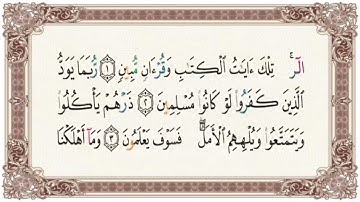 الٓرۚ تِلْكَ ءَايَٰتُ ٱلْكِتَٰبِ وَقُرْءَانٍ مُّبِينٍ ۝١ رُّبَمَا يَوَدُّ
الَّذِينَ كَفَرُوا۟ لَوْ كَانُوا۟ مُسْلِمِينَ ۝٢ ذَرْهُمْ يَأْكُلُوا۟
وَيَتَمَتَّعُوا۟ وَيُلْهِهِمُ الْأَمَلُ ۖ فَسَوْفَ يَعْلَمُونَ ۝٣ وَمَآ أَهْلَكْنَا